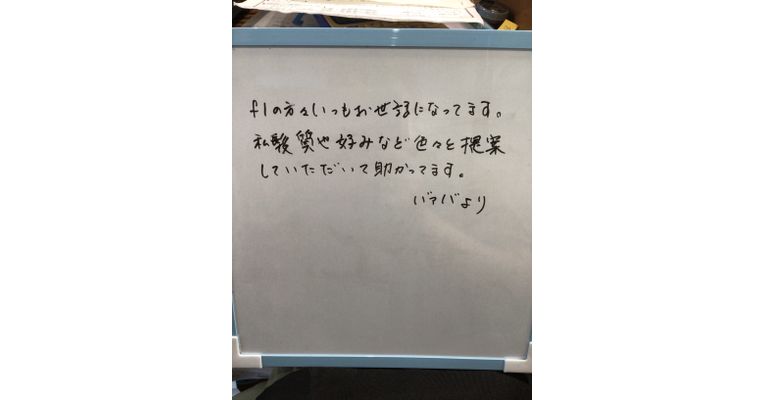 f1の方々いつもお世話になってます。
私髪質や好みなど色々と提案
していただいて助かってます。
バァバより